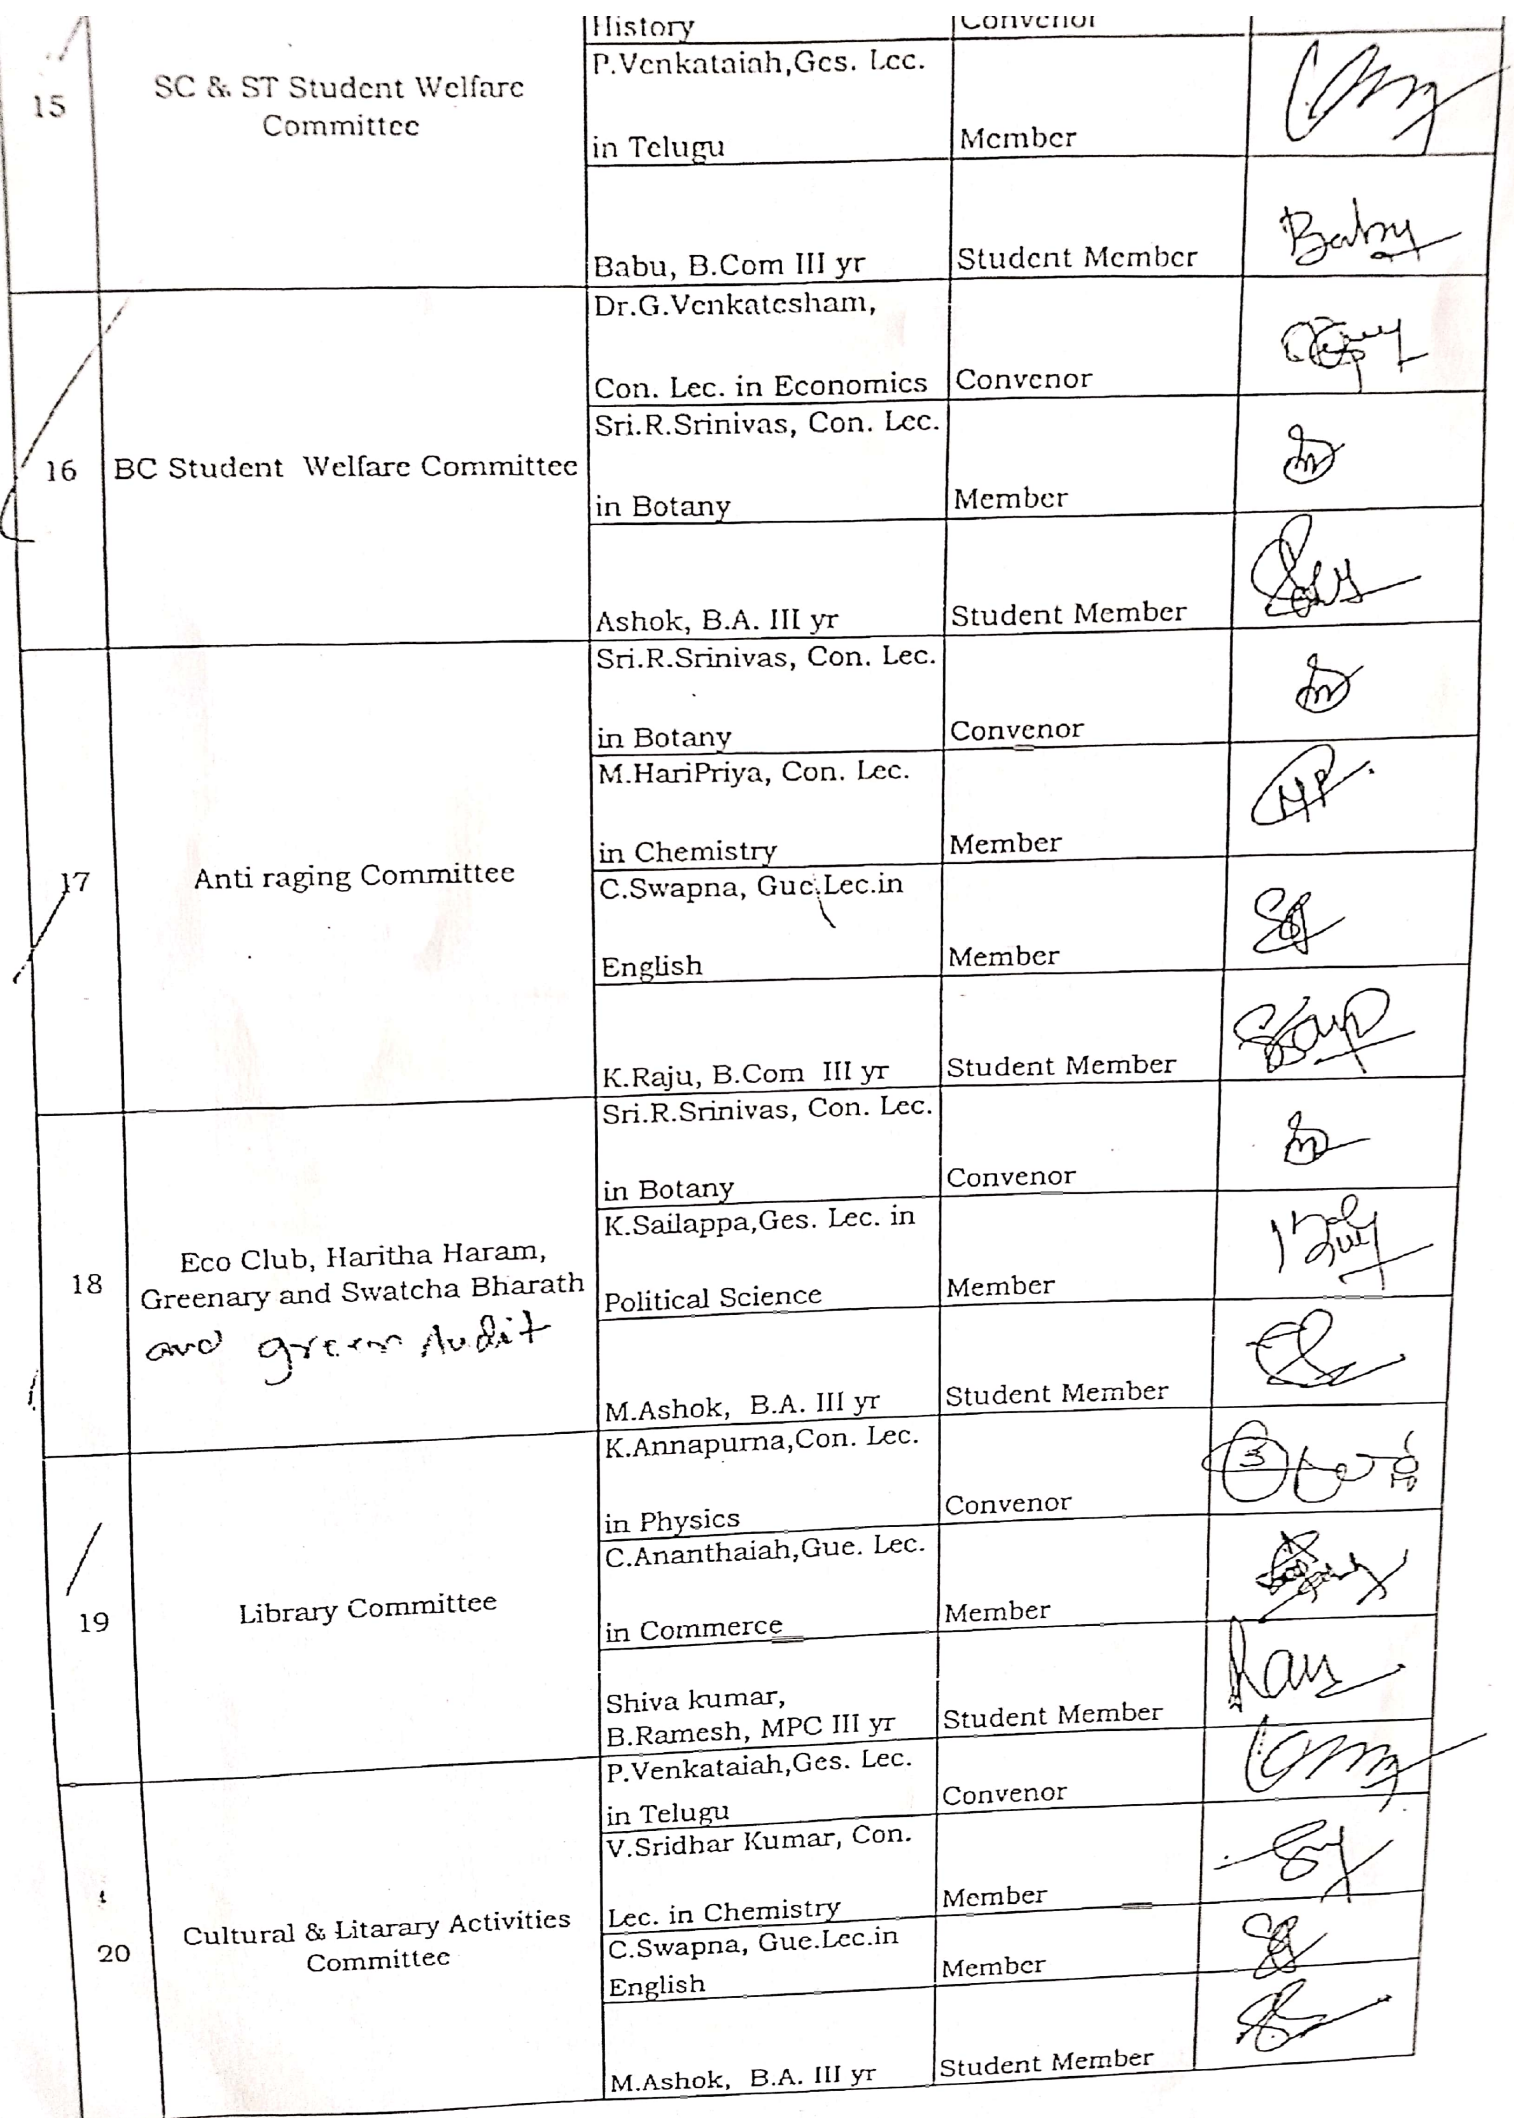 History
Convenor
15
SC & ST Student Welfare
Committee
P.Venkataiah,Ges. Lec.
in Telugu
Member
Babu, B.Com III yr
Student Member
Babu
16
BC Student Welfare Committee
Dr.G.Venkatesham,
Con. Lec. in Economics
Convenor
Sri.R.Srinivas, Con. Lec.
in Botany
Member
Ashok, B.A. III yr
Student Member
17
Anti raging Committee
Sri.R.Srinivas, Con. Lec.
in Botany
Convenor
M.HariPriya, Con. Lec.
in Chemistry
Member
C.Swapna, Gue.Lec.in
English
Member
K.Raju, B.Com III yr
Student Member
18
Eco Club, Haritha Haram,
Greenary and Swatcha Bharath
and green Audit
Sri.R.Srinivas, Con. Lec.
in Botany
Convenor
K.Sailappa,Ges. Lec. in
Political Science
Member
M.Ashok, B.A. III yr
Student Member
19
Library Committee
K.Annapurna,Con. Lec.
in Physics
Convenor
C.Ananthaiah,Gue. Lec.
in Commerce
Member
Shiva kumar,
B.Ramesh, MPC III yr
Student Member
20
Cultural & Litarary Activities
Committee
P.Venkataiah,Ges. Lec.
in Telugu
Convenor
V.Sridhar Kumar, Con.
Lec. in Chemistry
Member
C.Swapna, Gue.Lec.in
English
Member
M.Ashok, B.A. III yr
Student Member